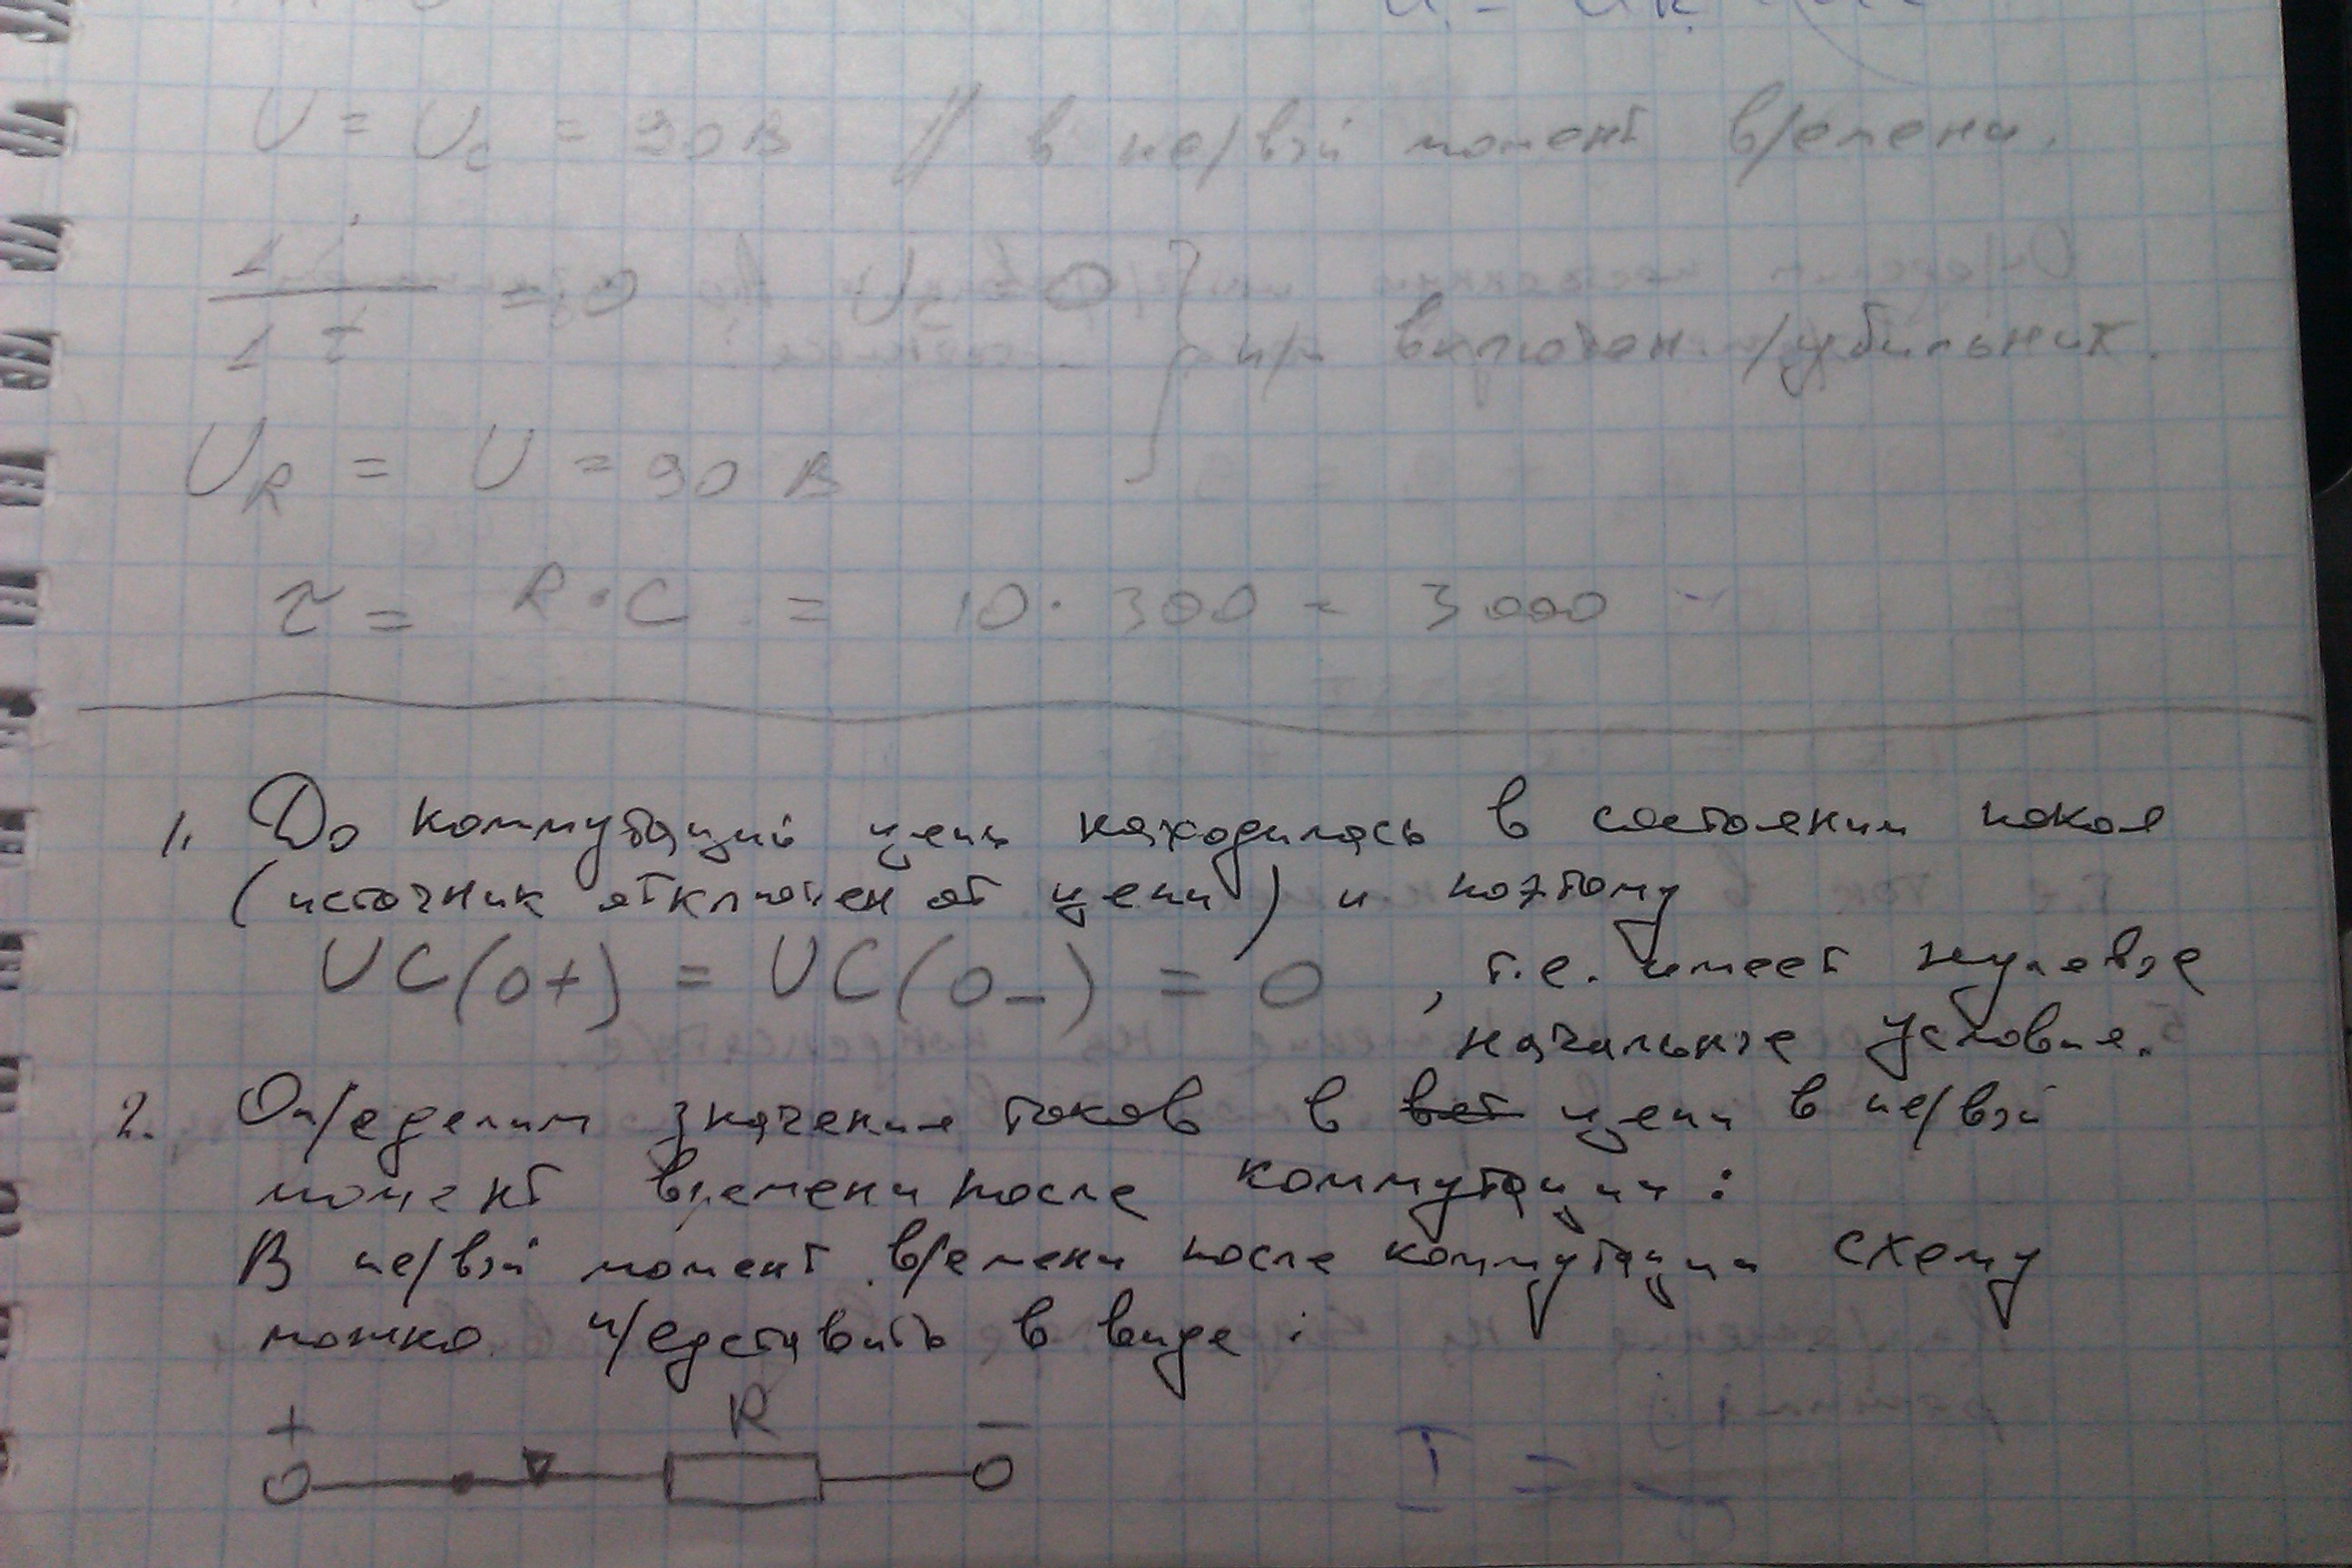 U = Uc = 90 В // в первый момент времени.
i
1
= 0 U = 0
1 t
при включен. рубильник.
UR = U = 90 В
τ = R·C = 10·300 = 3000
1. До коммутации цепь находилась в состоянии покоя
(источник отключен от цепи) и поэтому
UC(0+) = UC(0-) = 0 , т.е. имеет нулевые
начальные условия.
2. Определим значения токов в цепи в первый
момент времени после коммутации:
В первый момент времени после коммутации схему
можно представить в виде:
+ R -
I =